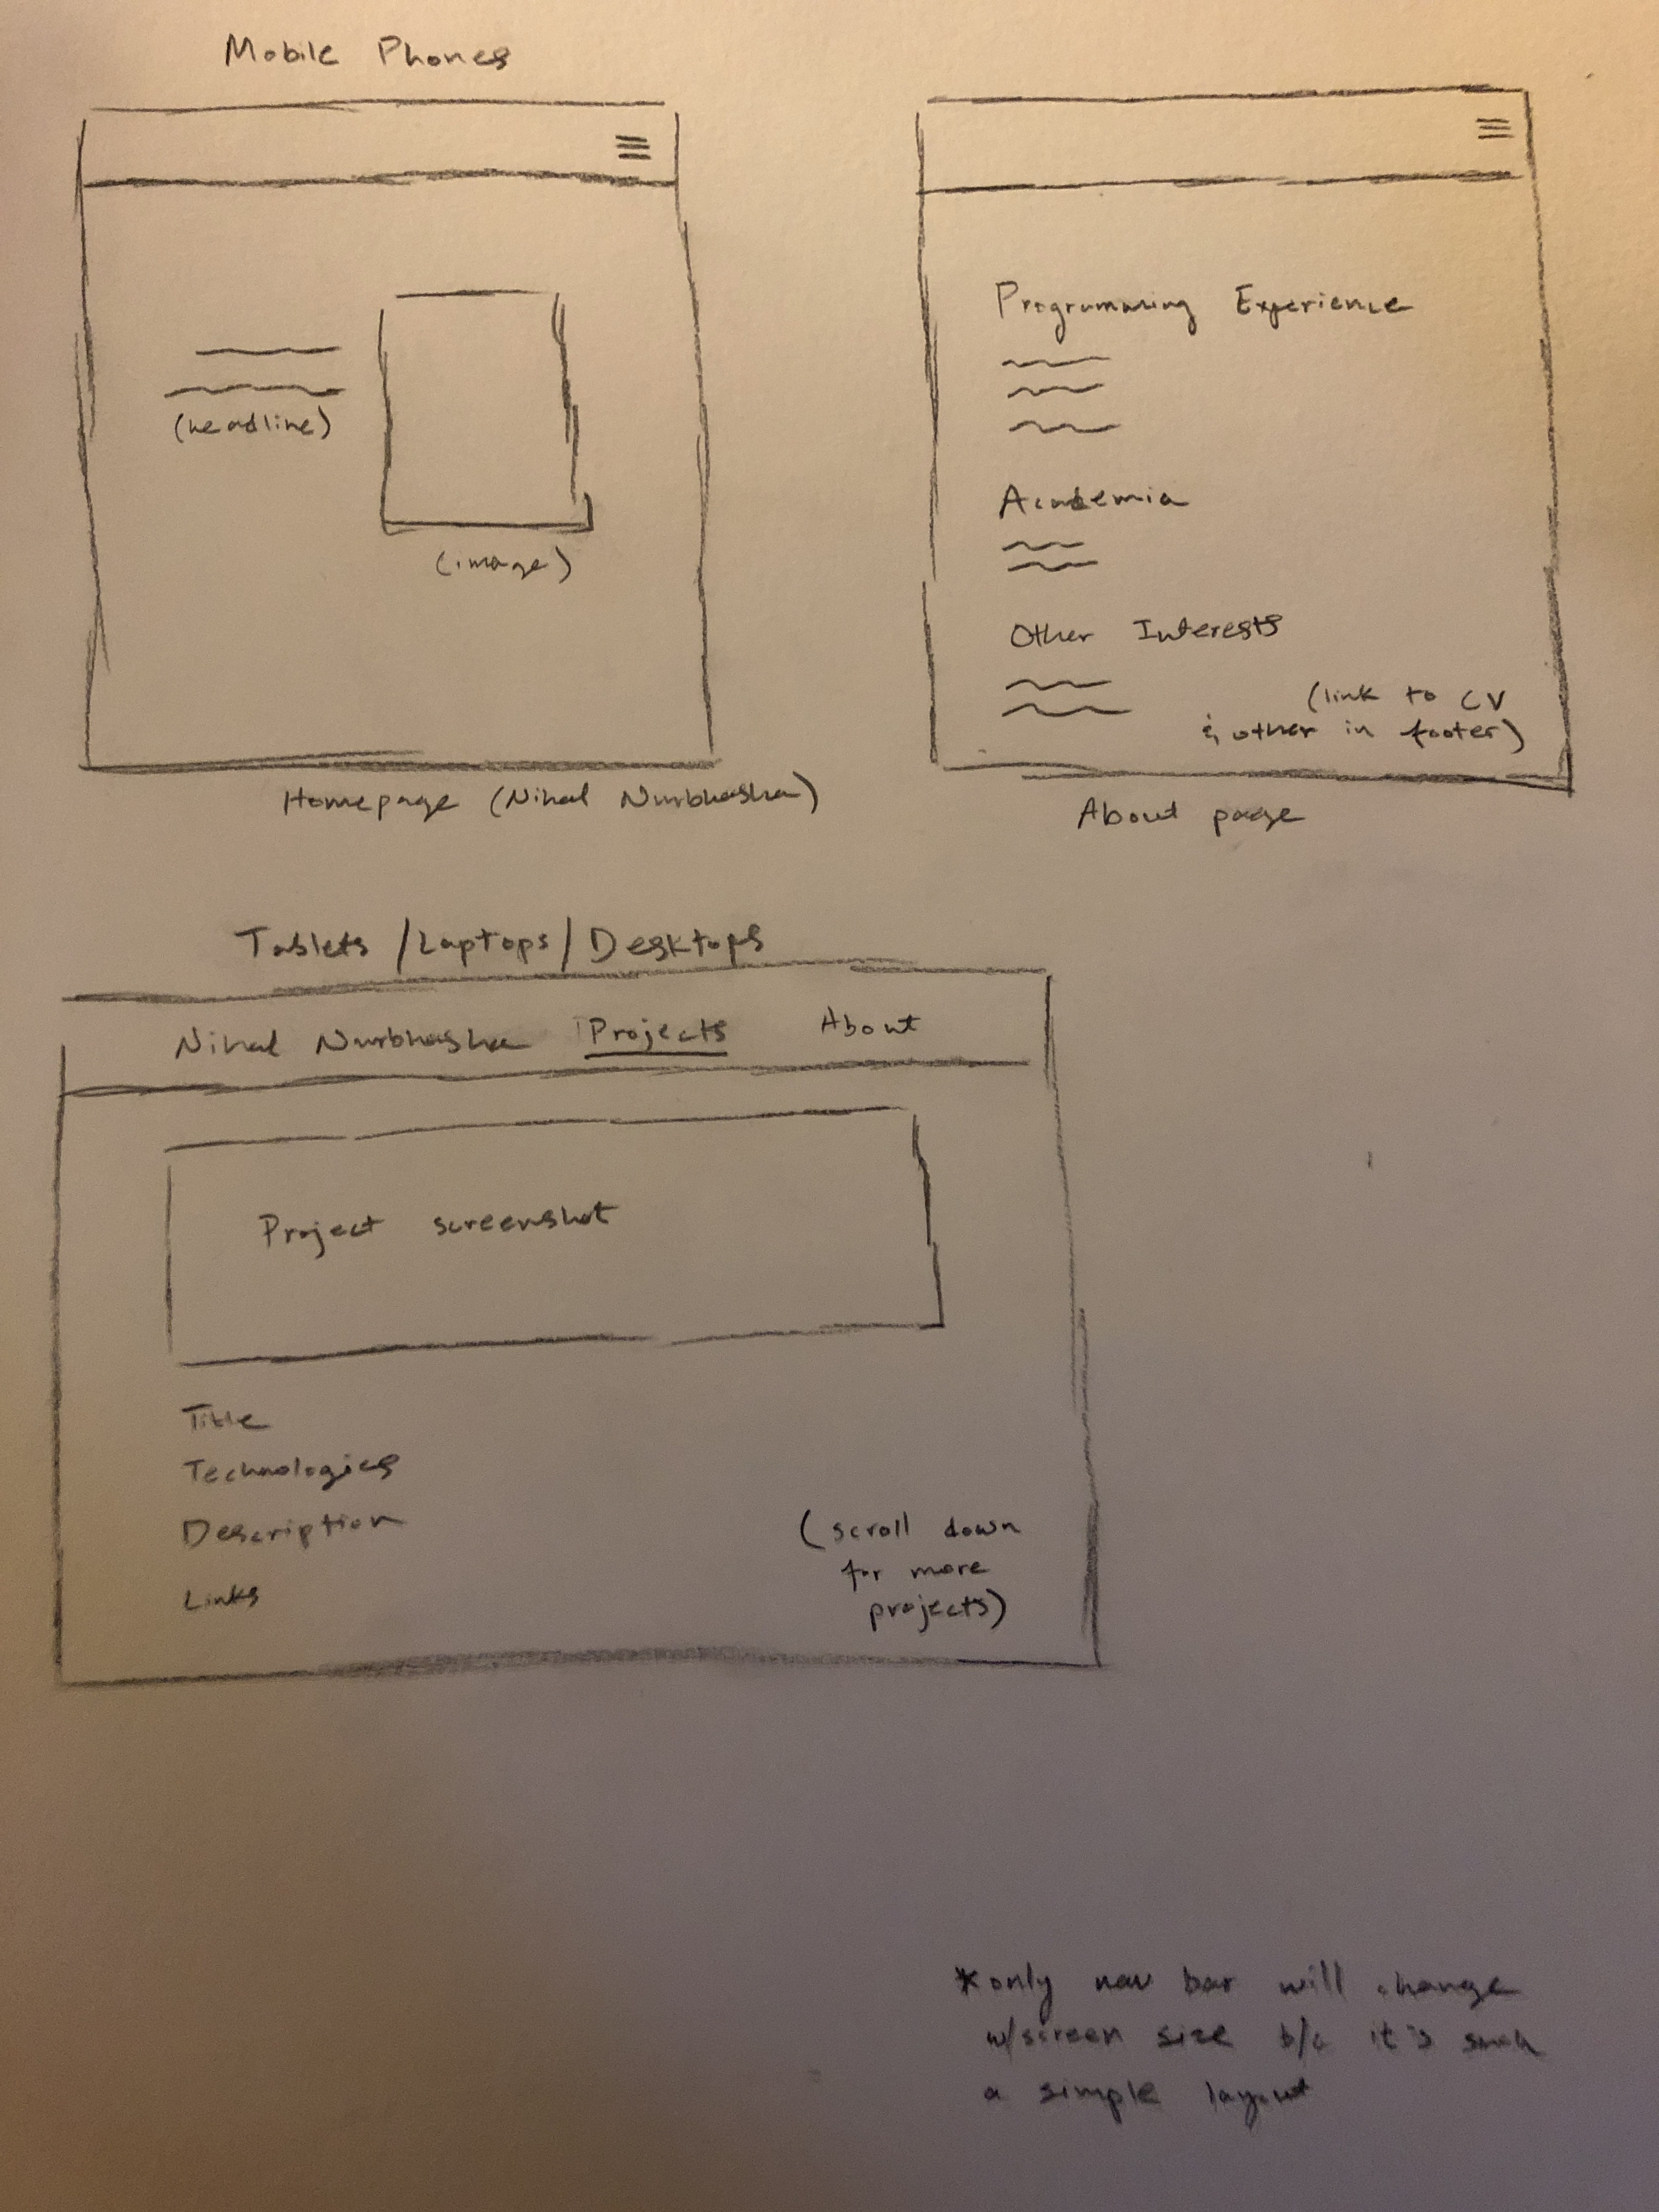 Mobile Phones
(headline)
(image)
Homepage (Nihal Nurbhasha)
Programming Experience
Academia
Other Interests
(link to CV
& other in footer)
About page
Tablets / Laptops / Desktops
Nihal Nurbhasha Projects About
Project screenshot
Title
Technologies
Description
Links
(scroll down
for more
projects)
*only nav bar will change
w/screen size b/c it's such
a simple layout